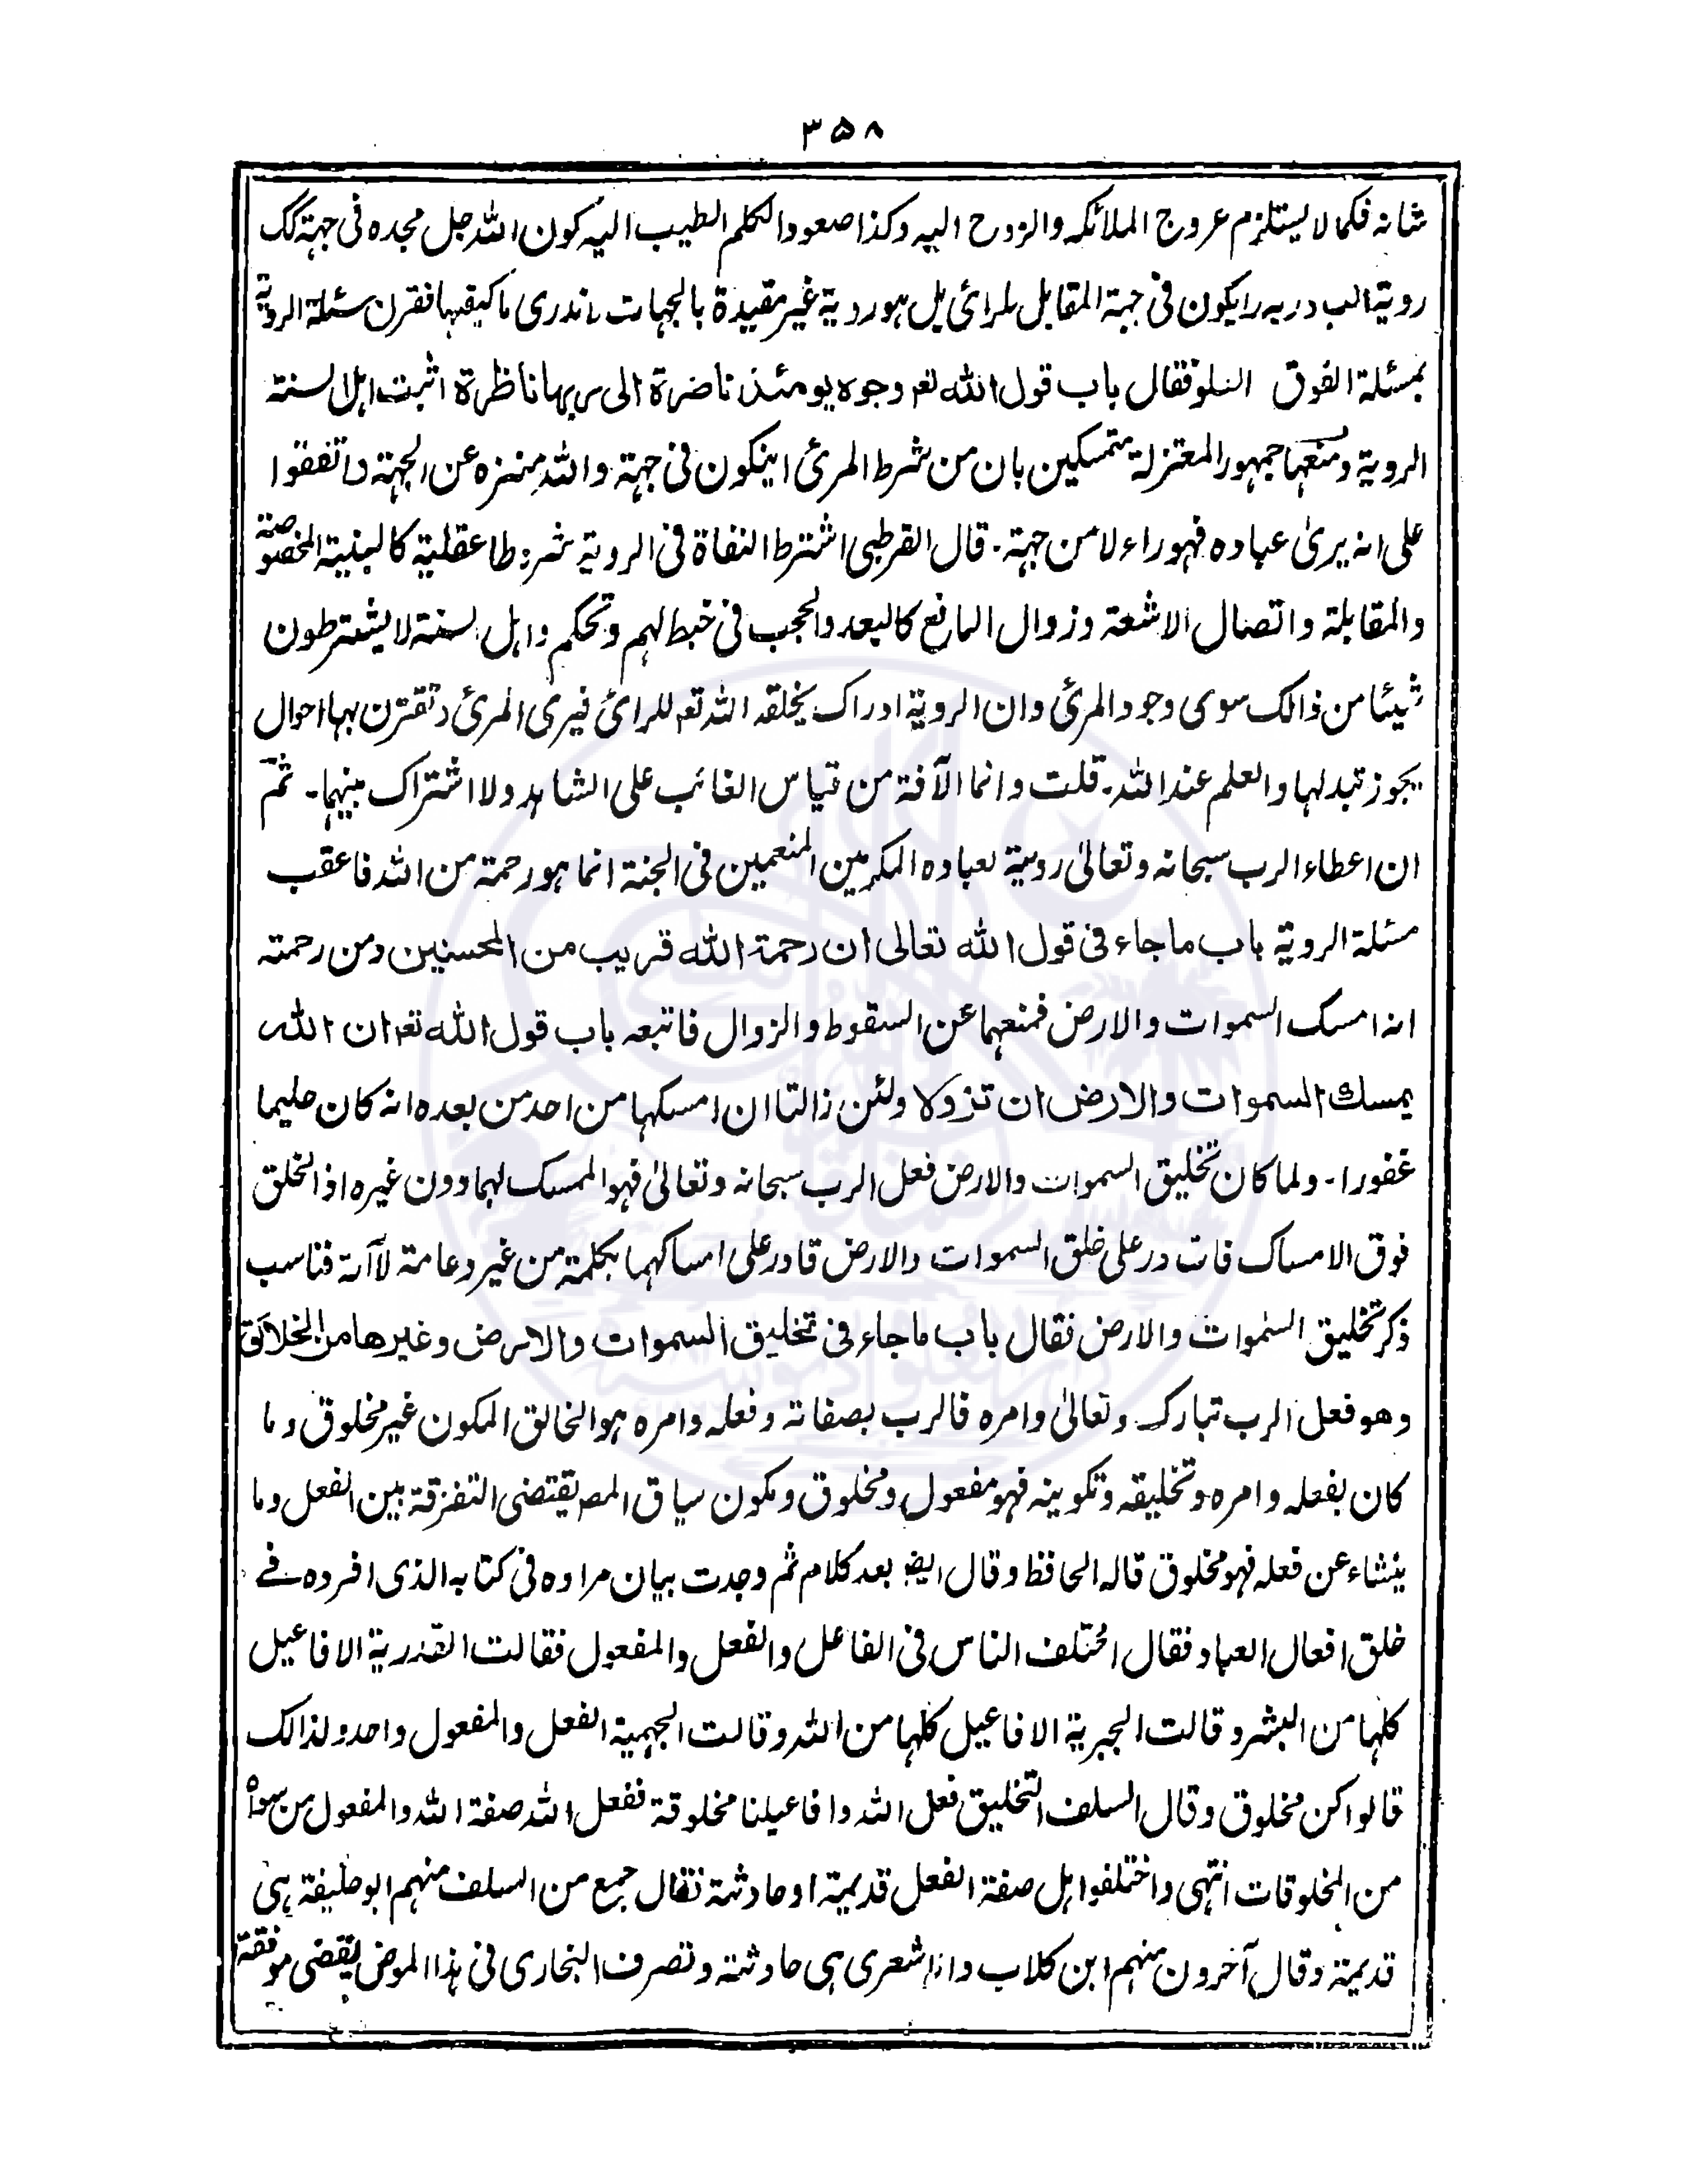 ۳۵۸
شانہ فکما لا یستلزم عروج الملائکہ والروح الیہ وکذا صعود الکلم الطیب الیہ کون اللہ جل مجدہ فی جہۃ کک
رویۃ العباد ربہم لا یکون فی جہۃ المقابل للرائی بل ہو رویۃ غیر مقیدۃ بالجہات ما ندری ما کیفیتہا فقرن مسئلۃ الرویۃ
بمسئلۃ الفوق العلو فقال باب قول اللہ تعہ وجوہ یومئذ ناضرۃ الی ربہا ناظرۃ اثبت اہل السنۃ
الرویۃ ومنعہا جمہور المعتزلۃ متمسکین بان من شرط المرئ ان یکون فی جہۃ واللہ منزہ عن الجہۃ واتفقوا
علی انہ یریٰ عبادہ فہو راء لا من جہۃ۔ قال القرطبی اشترط النفاۃ فی الرویۃ شروطا عقلیۃ کالبنیۃ المخصوصۃ
والمقابلۃ واتصال الاشعۃ وزوال المانع کالبعد والحجب فی خبط لہم وتحکم واہل السنۃ لا یشترطون
شیئا من ذالک سوی وجود المرئ وان الرویۃ ادراک یخلقہ اللہ تعہ للرائ فیری المرئ وتقترن بہا احوال
یجوز تبدلہا والعلم عند اللہ۔ قلت وانما الآفۃ من قیاس الغائب علی الشاہد ولا اشتراک بینہما۔ ثم
ان اعطاء الرب سبحانہ وتعالیٰ رویۃ لعبادہ المکرمین المنعمین فی الجنۃ انما ہو رحمۃ من اللہ فاعقب
مسئلۃ الرویۃ باب ما جاء فی قول اللہ تعالی ان رحمۃ اللہ قریب من المحسنین ومن رحمتہ
انہ امسک السموات والارض فمنعہما عن السقوط والزوال فاتبعہ باب قول اللہ تعہ ان اللہ
یمسک السموات والارض ان تزولا ولئن زالتا ان امسکہما من احد من بعدہ انہ کان حلیما
غفورا۔ ولما کان تخلیق السموات والارض فعل الرب سبحانہ وتعالیٰ فہو الممسک لہما دون غیرہ اذ الخلق
فوق الامساک فالقادر علی خلق السموات والارض قادر علی امساکہما بکلمۃ من غیر دعامۃ لا آلۃ فناسب
ذکر تخلیق السموات والارض فقال باب ما جاء فی تخلیق السموات والارض وغیرھا من الخلائق
وھو فعل الرب تبارک وتعالیٰ وامرہ فالرب بصفاتہ وفعلہ وامرہ ہو الخالق المکون غیر مخلوق وما
کان بفعلہ وامرہ وتخلیقہ وتکوینہ فہو مفعول ومخلوق ومکون سیاق المص یقتضی التفرقۃ بین الفعل وما
ینشاء عن فعلہ فہو مخلوق قالہ الحافظ وقال ایضا بعد کلام ثم وجدت بیان مرادہ فی کتابہ الذی افردہ فے
خلق افعال العباد فقال اختلف الناس فی الفاعل والفعل والمفعول فقالت القدریۃ الافاعیل
کلہا من البشر وقالت الجبریۃ الافاعیل کلہا من اللہ وقالت الجہمیۃ الفعل والمفعول واحد ولذالک
قالوا کن مخلوق وقال السلف التخلیق فعل اللہ وافاعیلنا مخلوقۃ ففعل اللہ صفۃ اللہ والمفعول من سواہ
من المخلوقات انتہی واختلفوا ہل صفۃ الفعل قدیمۃ او حادثۃ فقال جمع من السلف منہم ابو حنیفۃ ہی
قدیمۃ وقال آخرون منہم ابن کلاب والاشعری ہی حادثۃ وتصرف البخاری فی ہذا الموضع یقتضی موافقۃ